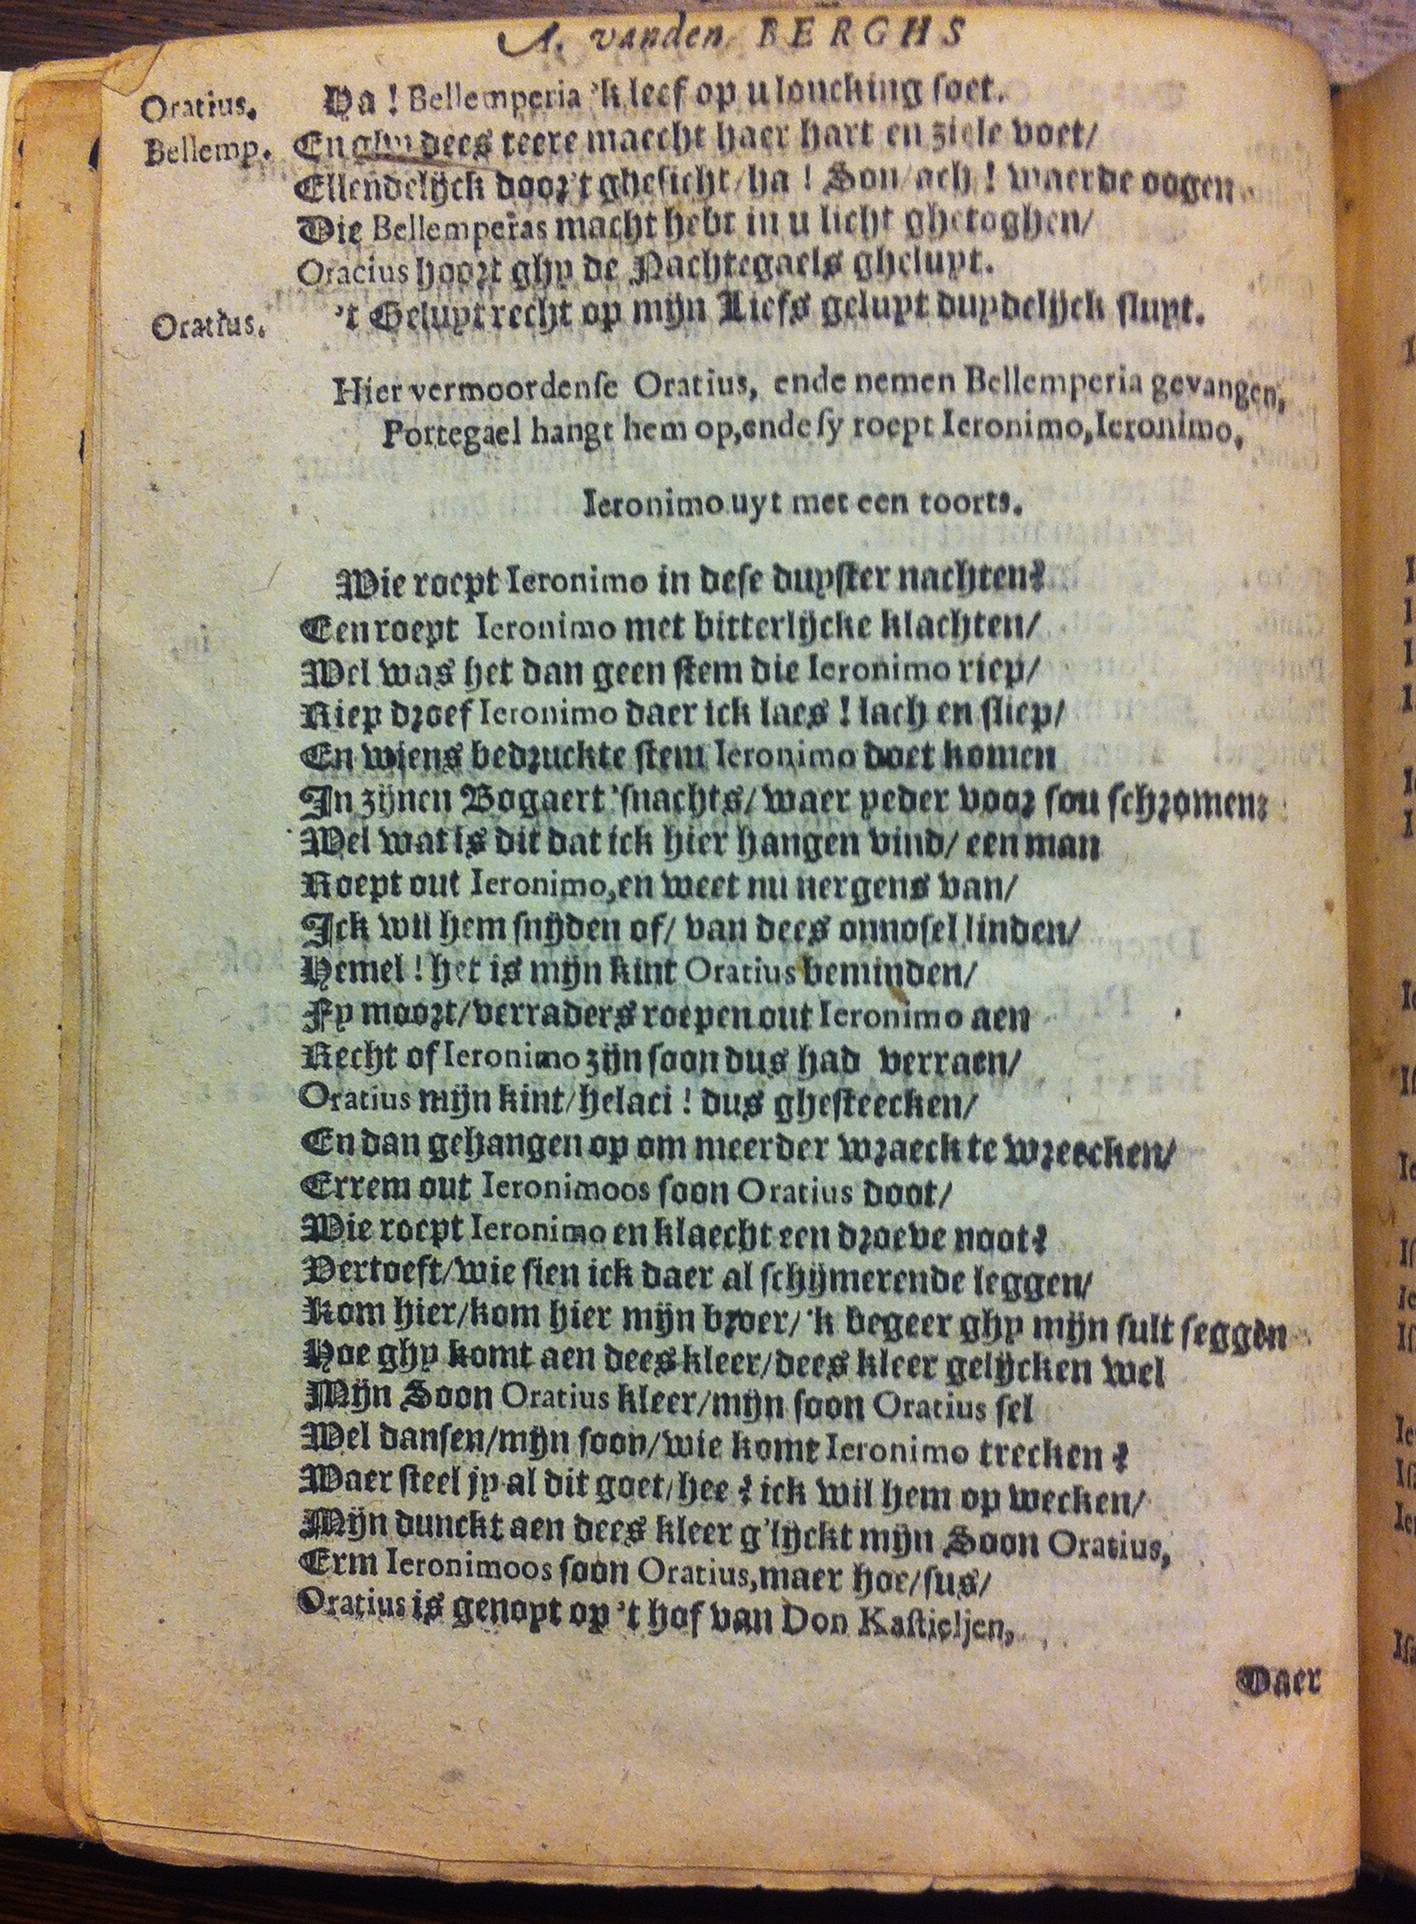 A. vanden BERGHS
Oratius. Ha ! Bellemperia 'k leef op u loncking soet.
Bellemp. En ghy dees teere maecht haer hart en ziele voet/
Ellendelijck door't ghesicht/ha ! Son/ach ! waerde oogen
Die Bellemperias macht hebt in u licht ghetoghen/
Oracius hoort ghy de Nachtegaels gheluyt.
Oratius. 't Geluyt recht op mijn Liefs geluyt duydelijck sluyt.
Hier vermoordense Oratius, ende nemen Bellemperia gevangen,
Portegael hangt hem op, ende sy roept Ieronimo, Ieronimo,
Ieronimo uyt met een toorts.
Wie roept Ieronimo in dese duyster nachten?
Een roept Ieronimo met bitterlijcke klachten/
Wel was het dan geen stem die Ieronimo riep/
Riep droef Ieronimo daer ick laes ! lach en sliep/
En wiens bedruckte stem Ieronimo doet komen
In zijnen Bogaert 'snachts/ waer yeder voor sou schromen?
Wel wat is dit dat ick hier hangen vind/ een man
Roept out Ieronimo, en weet nu nergens van/
Ick wil hem snijden of/ van dees onnosel linden/
Hemel ! het is mijn kint Oratius beminden/
Fy moort/verraders roepen out Ieronimo aen
Recht of Ieronimo zijn soon dus had verraen/
Oratius mijn kint/helaci ! dus ghesteecken/
En dan gehangen op om meerder wraeck te wreecken/
Errem out Ieronimoos soon Oratius doot/
Wie roept Ieronimo en klaecht een droeve noot?
Vertoeft/wie sien ick daer al schijmerende leggen/
Kom hier/kom hier mijn broer/ 'k begeer ghy mijn sult seggen
Hoe ghy komt aen dees kleer/dees kleer gelijcken wel
Mijn Soon Oratius kleer/mijn soon Oratius sel
Wel dansen/mijn soon/wie komt Ieronimo trecken ?
Waer steel jy al dit goet/hee ? ick wil hem op wecken/
Mijn dunckt aen dees kleer g'lijckt mijn Soon Oratius,
Erm Ieronimoos soon Oratius, maer hoe/sus/
Oratius is genoyt op 't hof van Don Kastieljen,
Daer